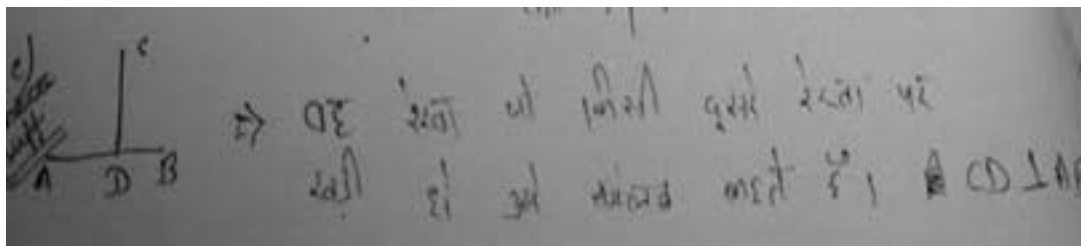 c)
C
A D B
⇒ वह रेखा जो किसी दूसरे रेखा पर
खड़ी हो उसे लंबवत कहते हैं। CD⊥AB